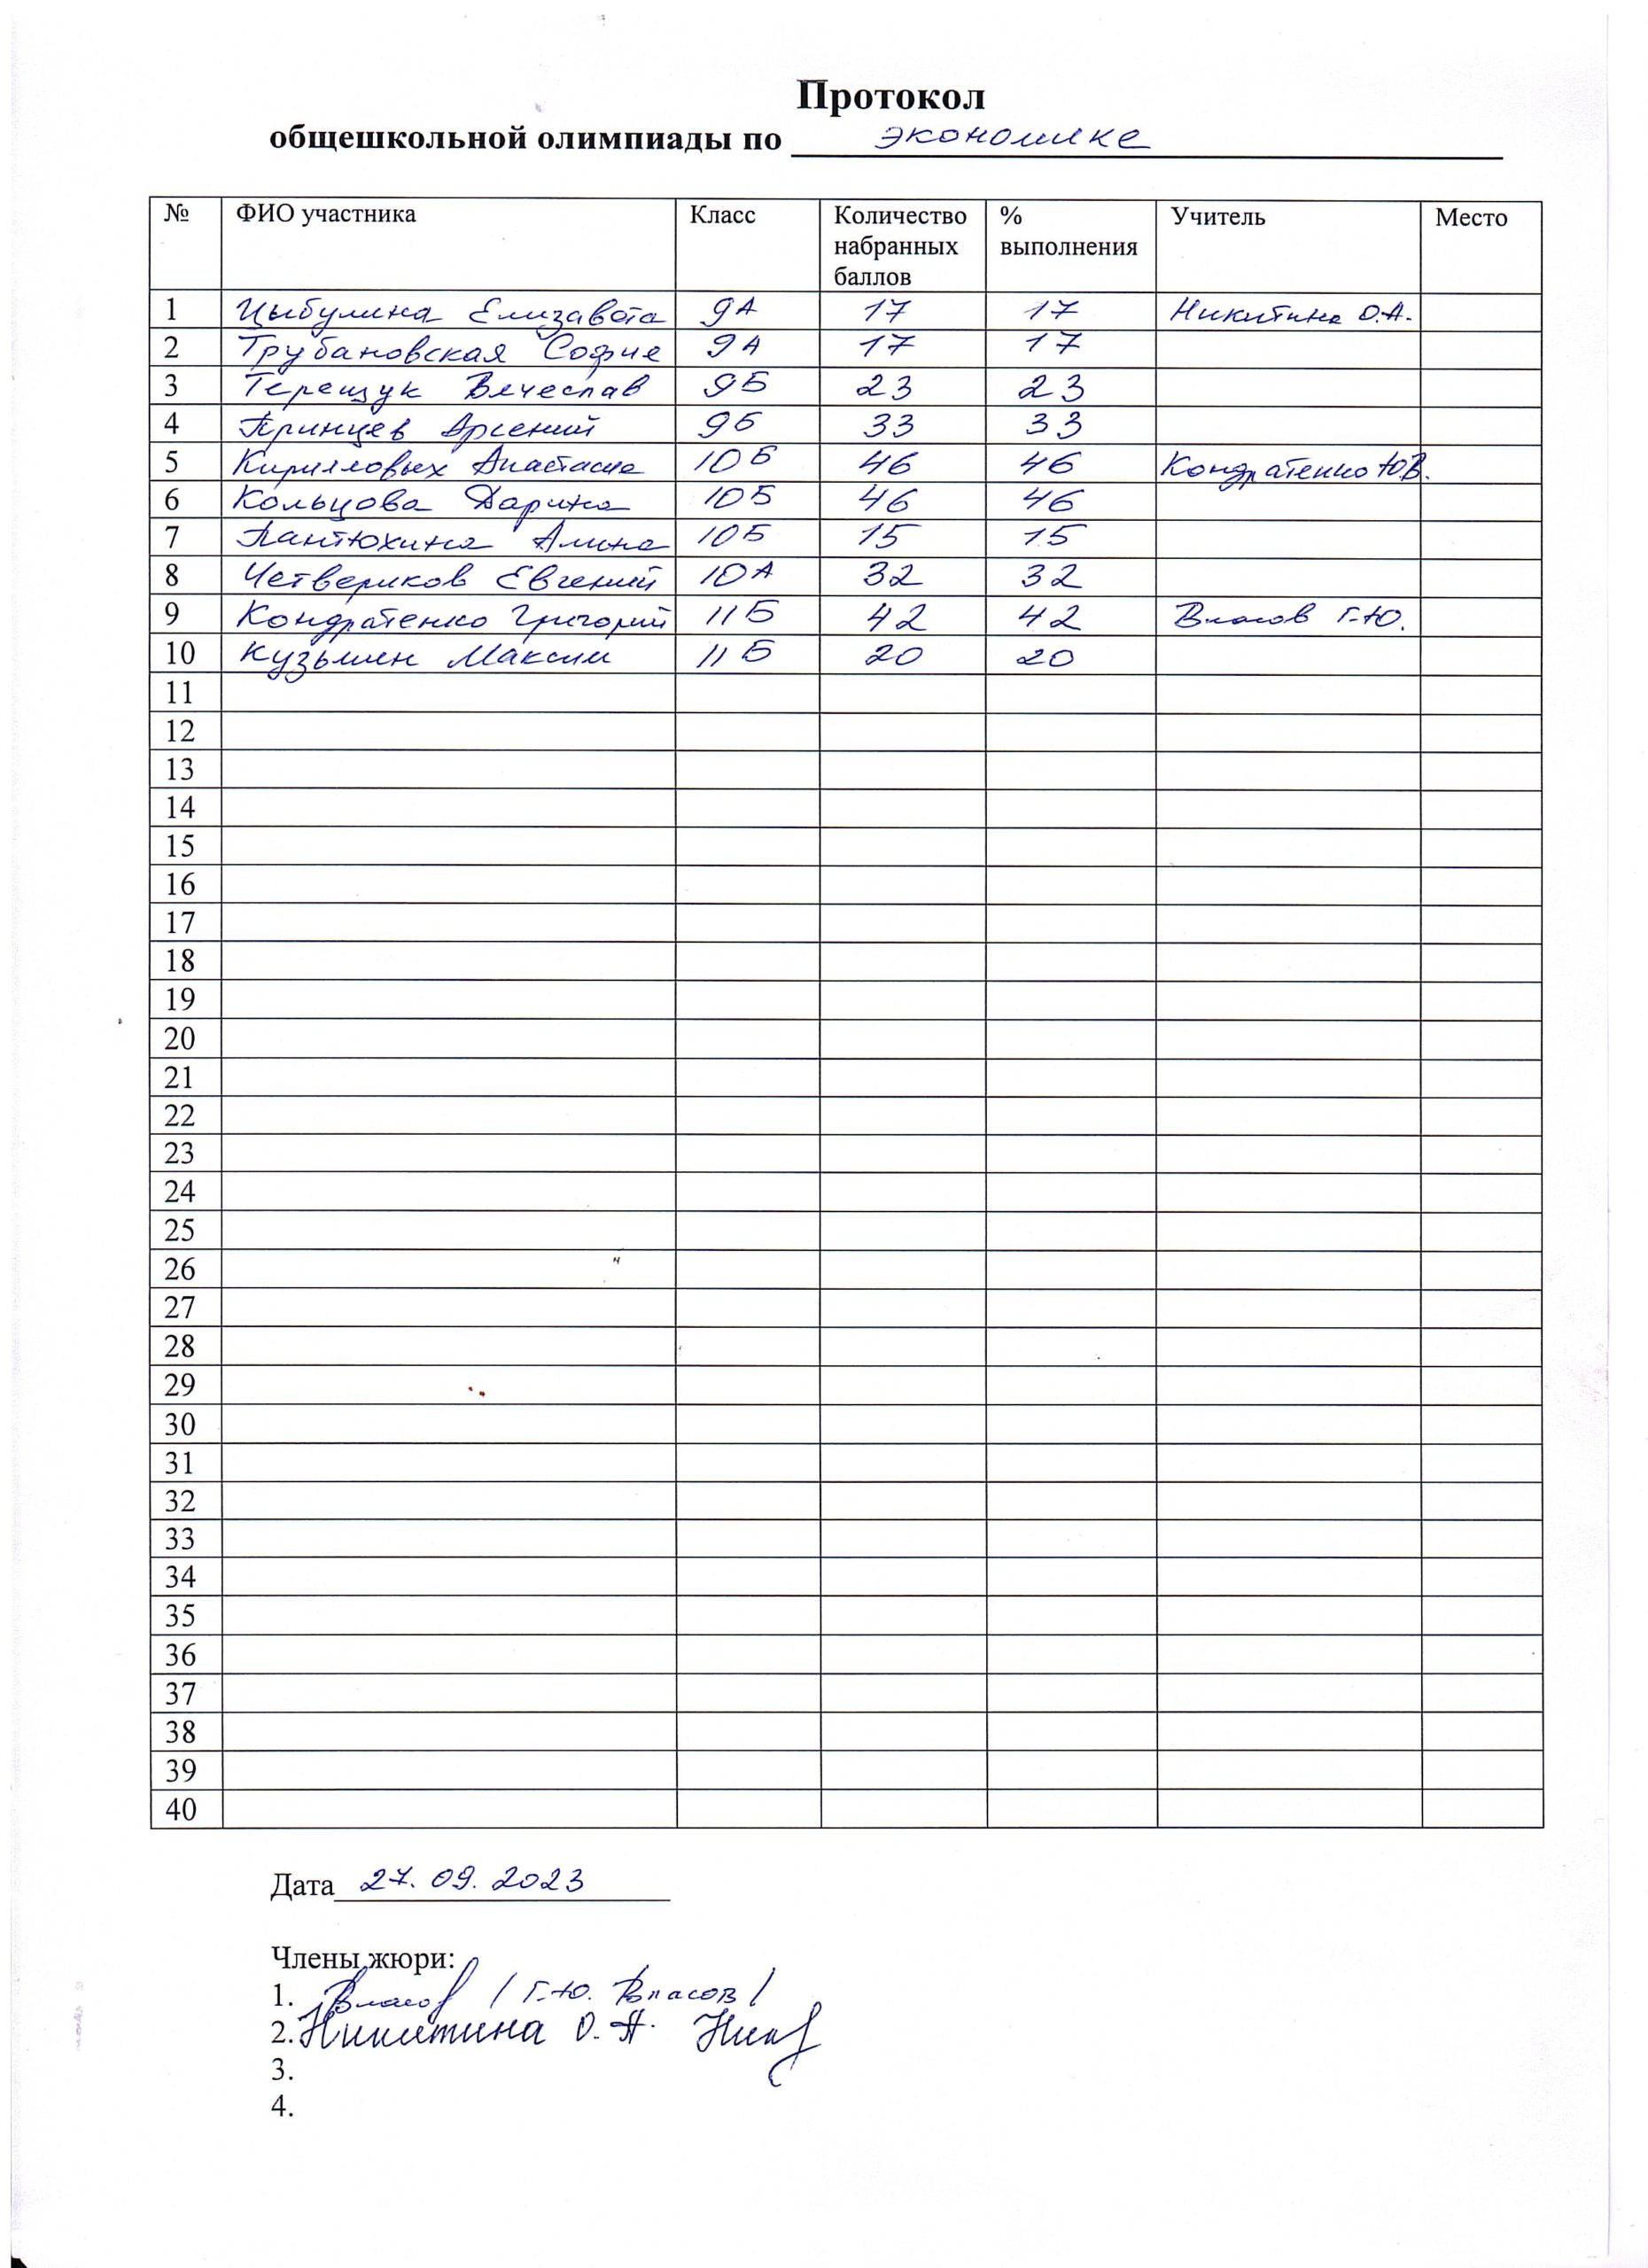 Протокол
общешкольной олимпиады по экономике
№ ФИО участника Класс Количество набранных баллов % выполнения Учитель Место
1 Цыбулина Елизавета 9А 17 17 Никитина О.А.
2 Трубановская София 9А 17 17
3 Терещук Вячеслав 9Б 23 23
4 Принцев Арсений 9Б 33 33
5 Кирилловых Анастасия 10Б 46 46 Кондратенко Ю.В.
6 Кольцова Дарина 10Б 46 46
7 Пантюхина Алина 10Б 15 15
8 Четвериков Евгений 10А 32 32
9 Кондратенко Григорий 11Б 42 42 Власов Г.Ю.
10 Кузьмин Максим 11Б 20 20
11
12
13
14
15
16
17
18
19
20
21
22
23
24
25
26
27
28
29
30
31
32
33
34
35
36
37
38
39
40
Дата 27.09.2023
Члены жюри:
1. Власов / Г.Ю. Власов /
2. Никитина О.А.
3.
4.